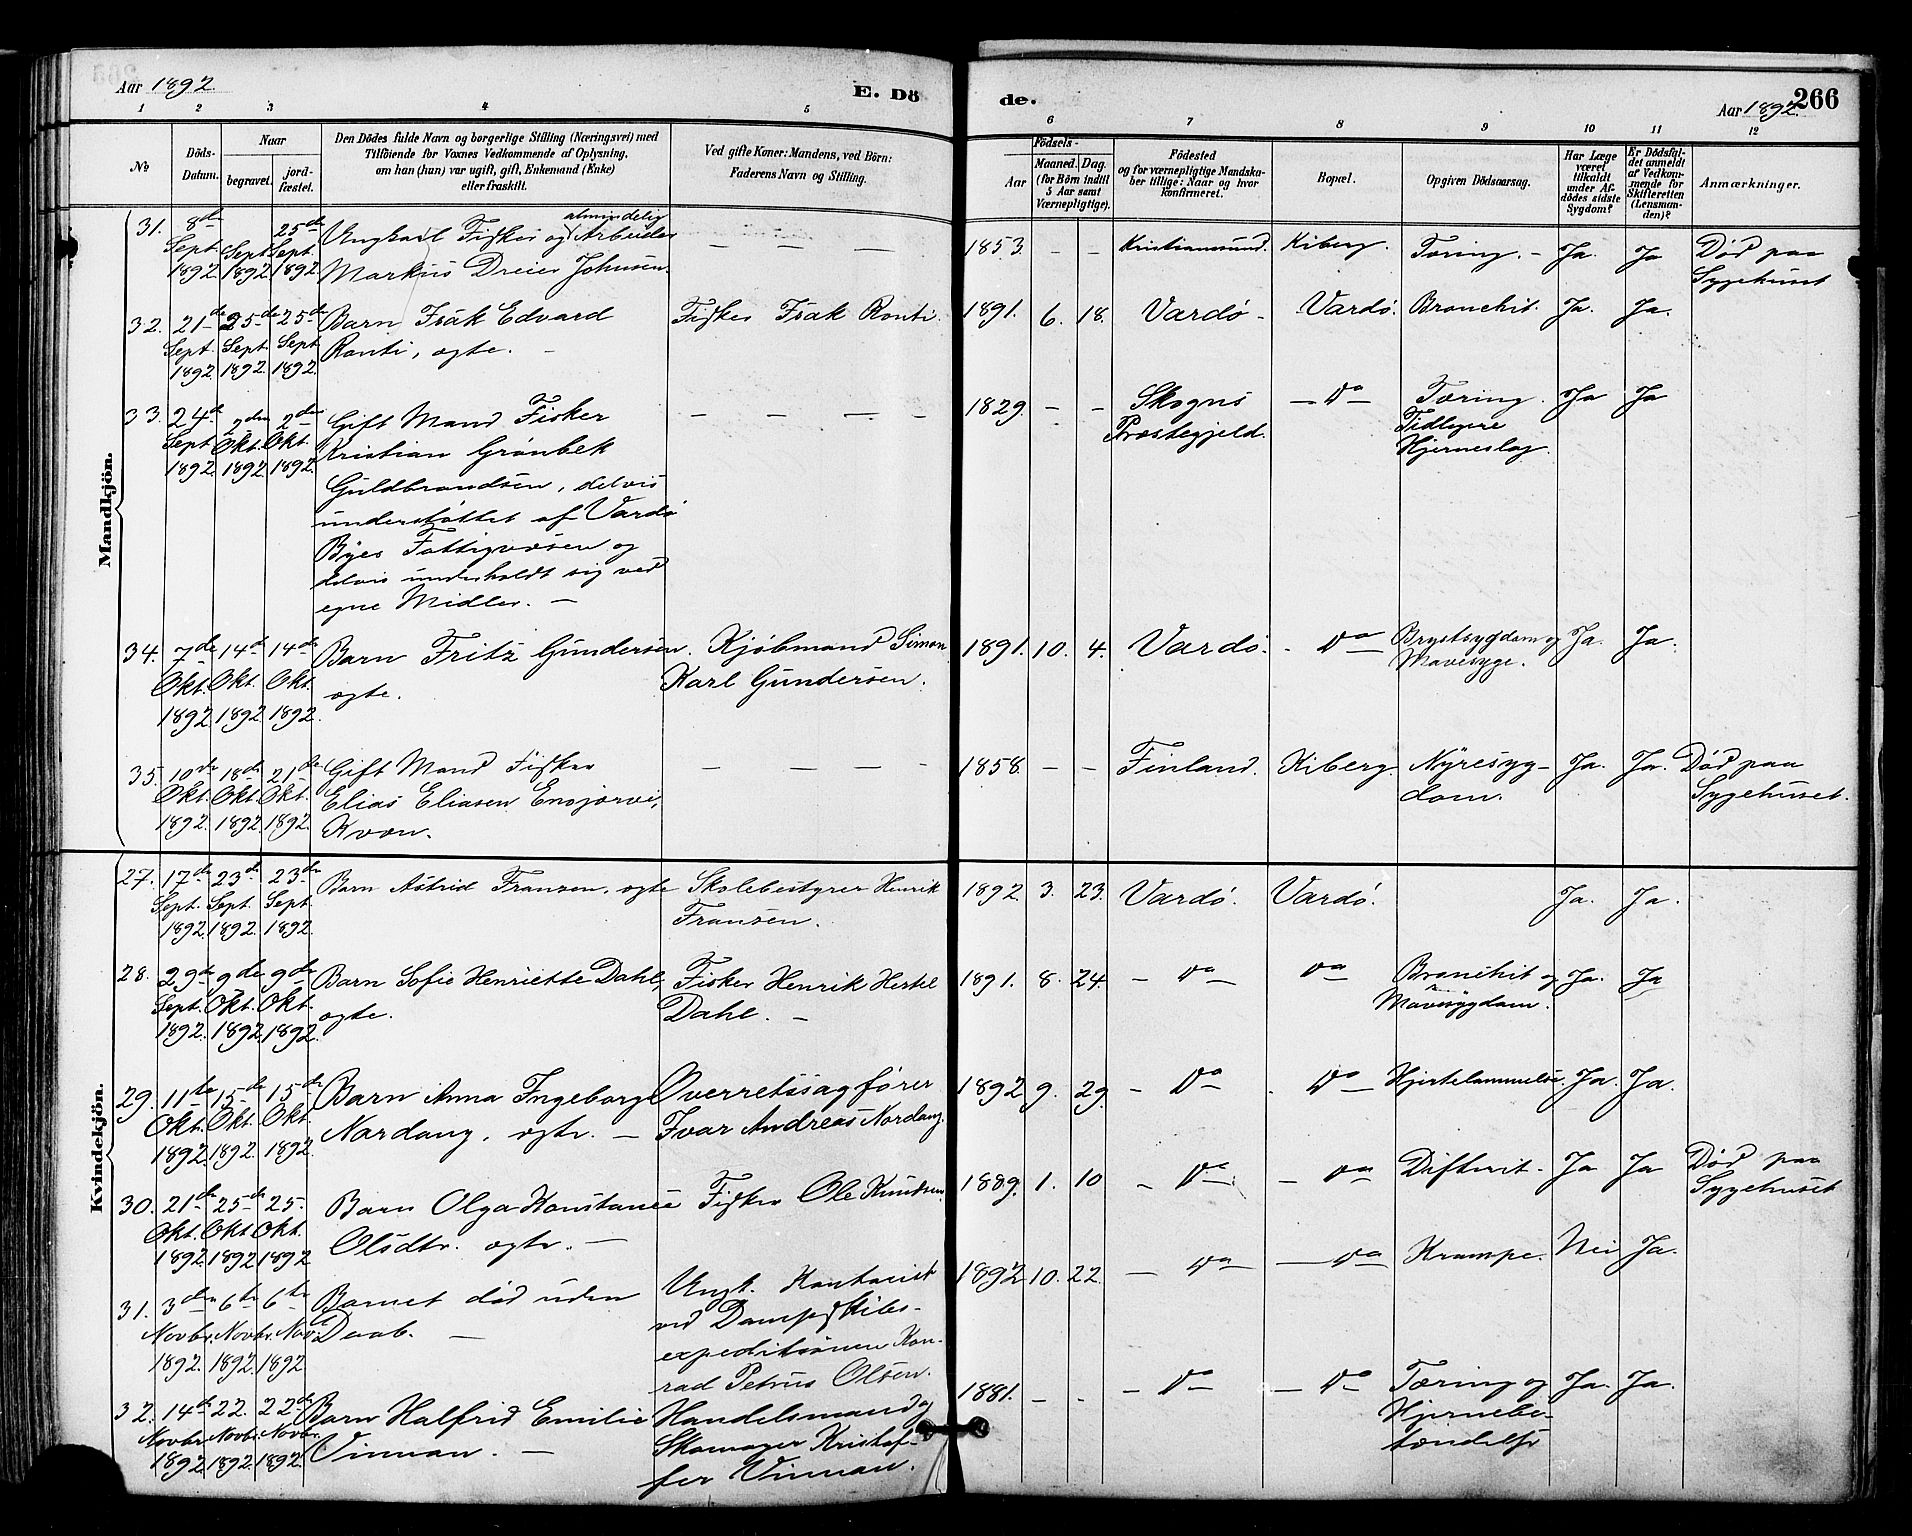 Aar 1892.
E. Dö
de.
Aar 1892.
266
1 2 3 4 5
6 7 8 9 10 11 12
No
Döds-Datum.
Naar
begravet.
jord-fæstet.
Den Dödes fulde Navn og borgerlige Stilling (Næringsvei) med
Tilföiende for Voxnes Vedkommende af Oplysning,
om han (hun) var ugift, gift, Enkemand (Enke)
eller fraskilt.
Ved gifte Koner: Mandens, ved Börn:
Faderens Navn og Stilling.
Födsels-
Aar
Maaned.
Dag.
(for Börn indtil
5 Aar samt
Værnepligtige).
Födested
og for værnepligtige Mandska-
ber tillige: Naar og hvor
konfirmeret.
Bopæl.
Opgiven Dödsaarsag.
Har Læge
været
tilkaldt
under Af-
dödes sidste
Sygdom?
Er Dödsfal-
det anmeldt
af Vedkom-
mende for
Skifteretten
(Lensman-
den)?
Anmærkninger.
Mandkjön.
31. 8de Sept 1892 Sept 1892 25de Sept. 1892
Ungkarl Fisker og almindelig Arbeider
Markus Dreier Johnsen.
— — —
1853. – – Kristianssund. Kiberg. Tæring. – Ja. Ja
Död paa
Sygehuset
32. 21de Sept. 1892. 25de Sept. 1892. 25de Sept 1892.
Barn Isak Edvard
Ronti, ægte. –
Fisker Isak Ronti.
1891. 6. 18. Vardö – Vardö. Bronchit. Ja. Ja.
33. 24de Sept 1892. 2den Okt. 1892 2den Okt. 1892.
Gift Mand Fisker
Kristian Grönbek
Guldbrandsen, delvis
understöttet af Vardö
Byes Fattigvæsen og
delvis underholdt sig ved
egne Midler. —
— — — –
1829. – – Skogns
Præstegjeld. — Do — Tæring. Ja Ja
Tidligere
Hjerneslag.
34. 7de Okt. 1892 14de Okt. 1892 14de Okt. 1892.
Barn Fritz Gundersen.
ægte.
Kjöbmand Simon
Karl Gundersen.
1891. 10. 4. Vardö. – Do — Brystsygdom og
Mavesyge. Ja. Ja.
35. 10de Okt. 1892. 18de Okt. 1892. 21de Okt. 1892.
Gift Mand Fisker
Elias Eliasen Ensjärvi,
Kvæn.
— — — –
1858. – – Finland. Kiberg. Nyresyg-
dom. Ja. Ja.
Död paa
Sygehuset.
Kvindekjön.
27. 17de Sept. 1892. 23de Sept. 1892. 23de Sept. 1892.
Barn Astrid Fransen, ægte
Skolebestyrer Henrik
Fransen.
1892. 3. 23. Vardö. Vardö. Ja. Ja.
28. 29de Sept. 1892. 9de Okt. 1892 9de Okt. 1892
Barn Sofie Henriette Dahl,
ægte.
Fisker Henrik Hertel
Dahl. –
1891. 8. 24. – do — do Bronchit og
Mavesygdom. Ja. Ja
29. 11te Okt. 1892. 15de Okt. 1892. 15de Okt. 1892.
Barn Anna Ingeborg
Nordang, ægte. –
Overretssagförer
Ivar Andreas Nordang.
1892 9. 29. – Do — . Do — Hjertelammelse. Ja. Ja.
30. 21de Okt. 1892 25de Okt 1892 25. Okt. 1892
Barn Olga Konstance
Olsdtr. ægte. —
Fisker Ole Knudsen.
1889. 1. 10 – Do — – do Difterit. Ja Ja
Död paa
Sygehuset
31. 3die Novbr. 1892. 6te Novbr. 1892. 6te Nov. 1892.
Barnet död uden
Daab. —
Ungk. Kontorist
ved Dampskibs-
expeditionen Kon-
rad Petrus Olsen.
1892. 10. 22. — do — — do Krampe. Nei Ja.
32. 14de Novbr 1892. 22. Novbr. 1892. 22de Novbr. 1892.
Barn Halfrid Emilie
Vinnan. —
Handelsmand og
Skomager Kristof-
fer Vinnan.
1881. – – – Do — — Do Tæring og
Hjernebe-
tændelse Ja. Ja.